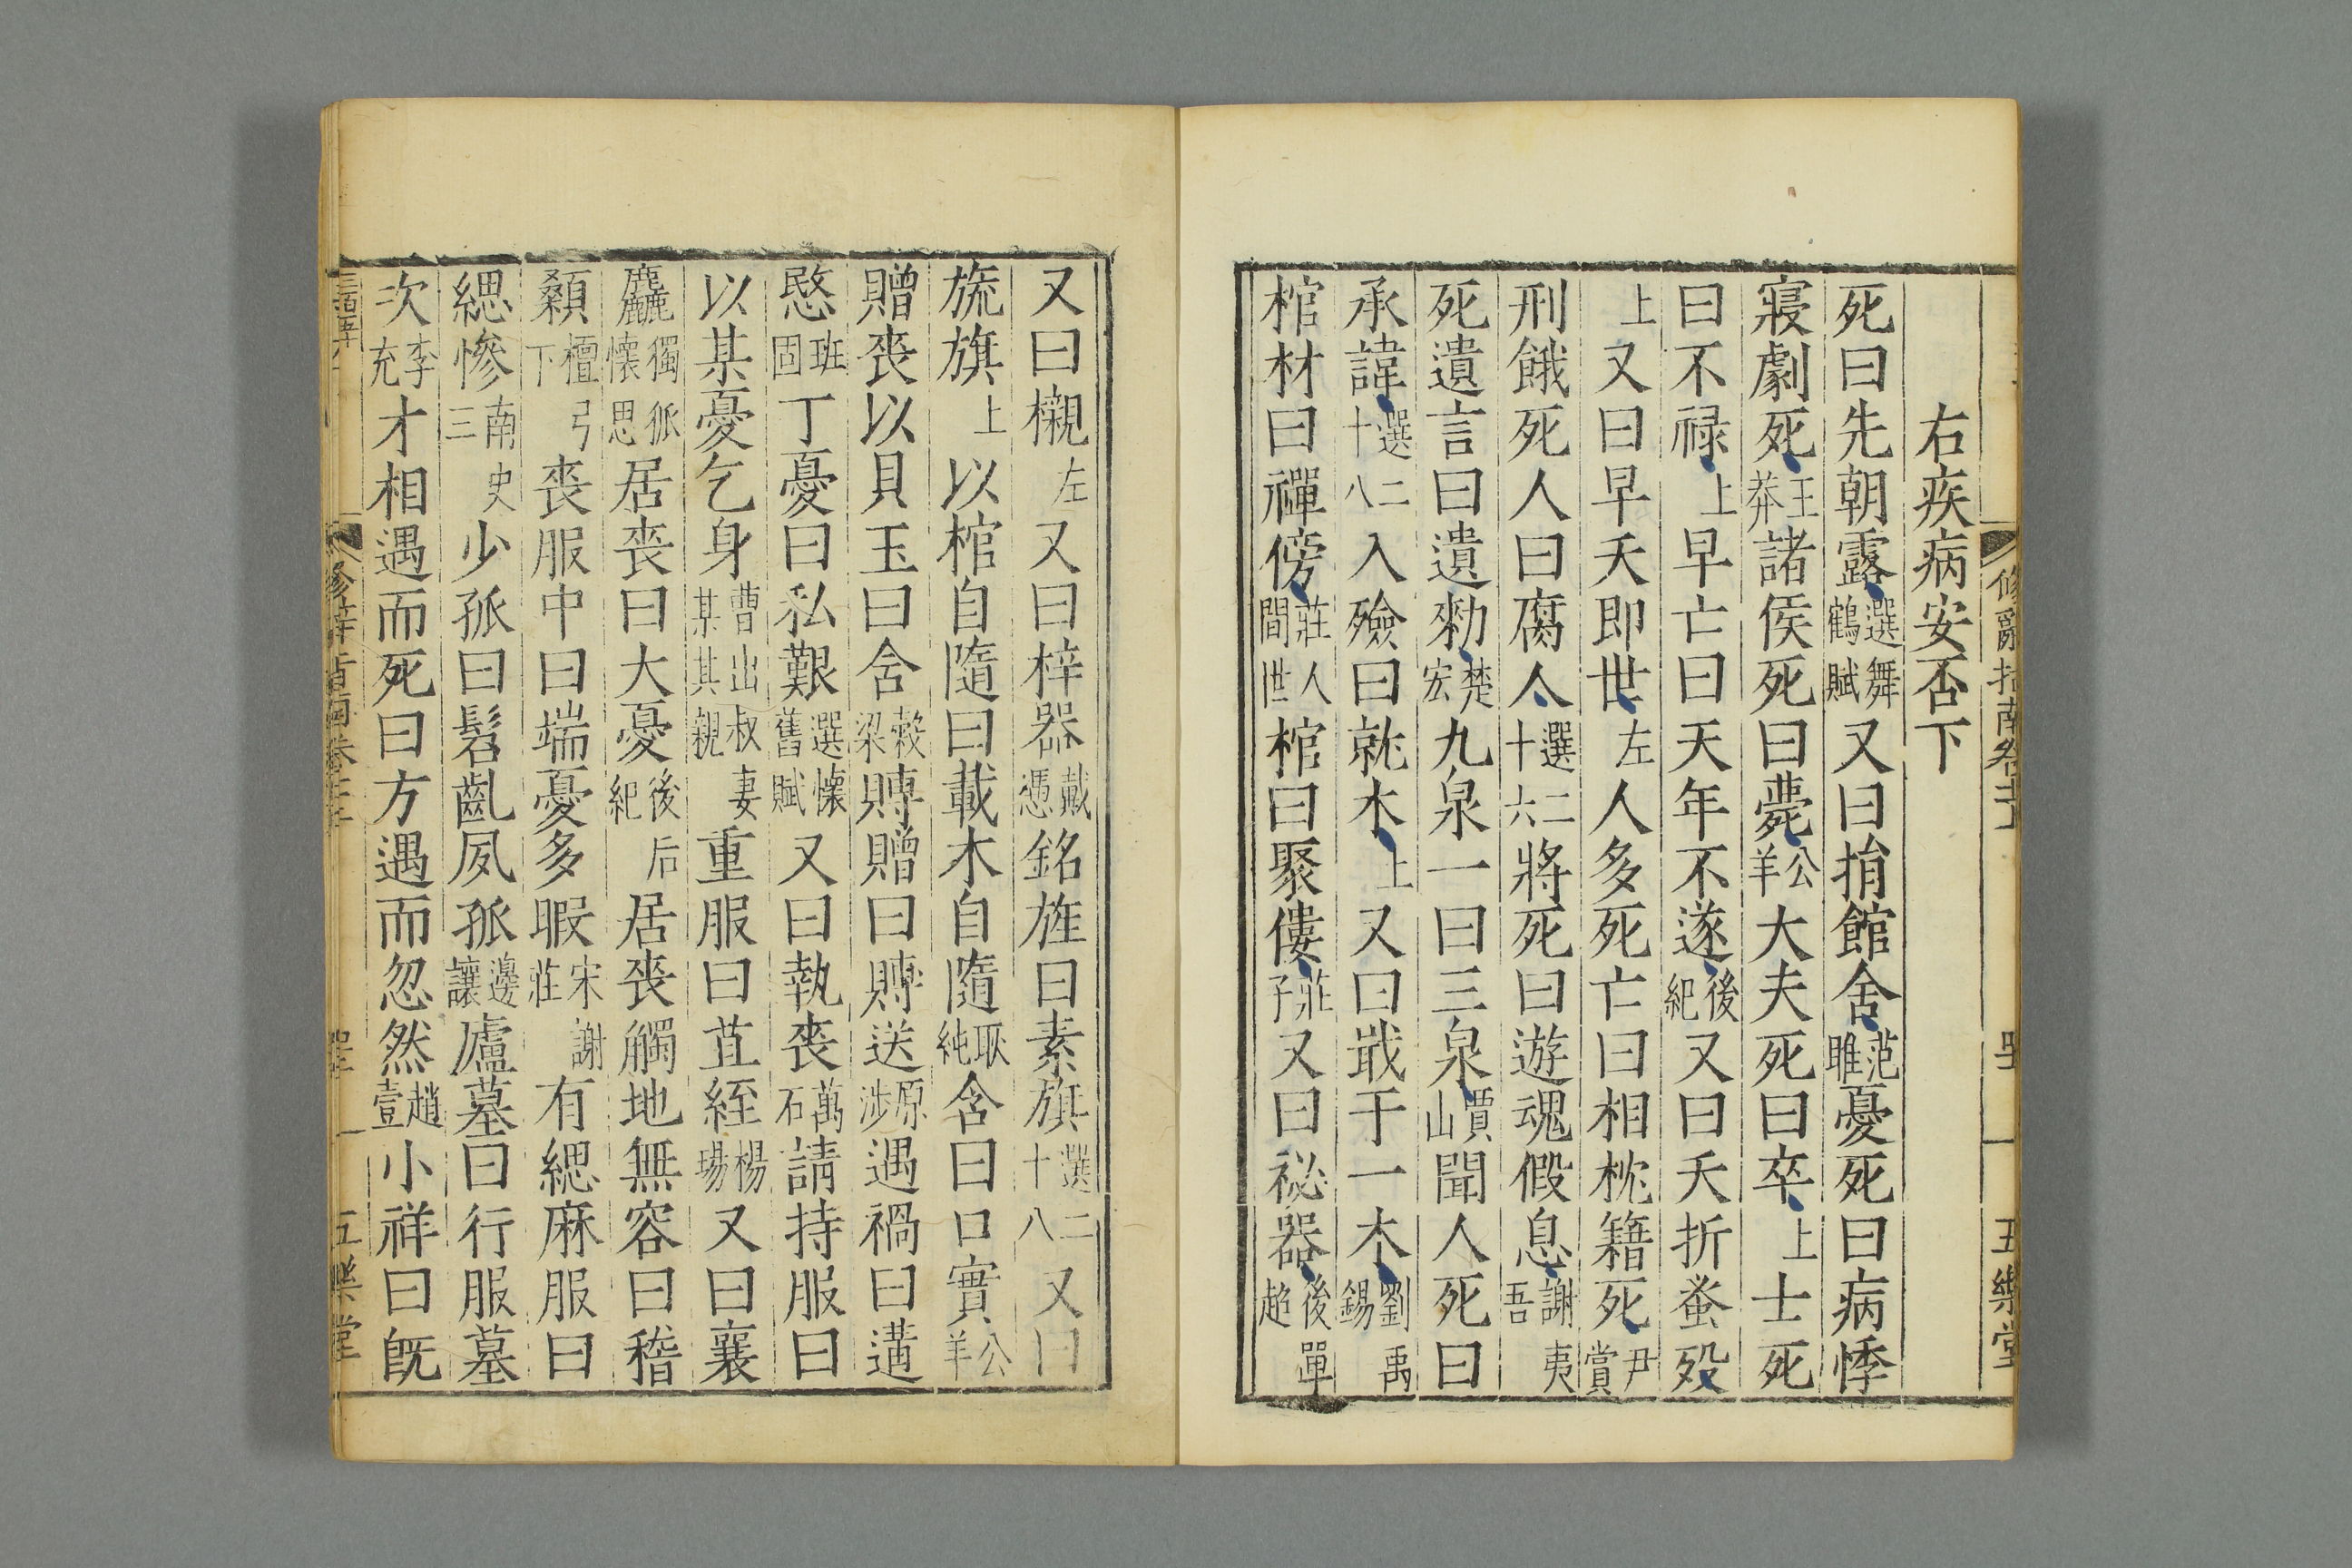 右疾病安否下
死曰先朝露選舞鶴賦又曰捐館舍范雎憂死曰病悸
寢劇死王莽諸侯死曰薨公羊大夫死曰卒上士死
曰不禄上早亡曰天年不遂後紀又曰夭折蚤歿
上又曰早夭即世左人多死亡曰相枕籍死尹賞
刑餓死人曰腐人選二十六將死曰遊魂假息謝夷吾
死遺言曰遺勑楚宏九泉一曰三泉賈山聞人死曰
承諱選二十八入殮曰就木上又曰戢于一木劉禹錫
棺材曰禪傍莊人間世棺曰聚僂莊子又曰祕器後單超
又曰櫬左又曰梓器戴憑銘旌曰素旗選二十八又曰
旒旗上以棺自隨曰載木自隨耿純含曰口實公羊
贈喪以貝玉曰含穀梁賻贈曰賻送原涉遇禍曰遘
愍班固丁憂曰私艱選懷舊賦又曰執喪萬石請持服曰
以某憂乞身曹出叔妻某其親重服曰苴絰楊瑒又曰襄
麤獨孤懷思居喪曰大憂後后紀居喪觸地無容曰稽
顙檀弓下喪服中曰端憂多暇宋謝莊有緦麻服曰
緦慘南史三少孤曰髫齓夙孤邊讓廬墓曰行服墓
次李充才相遇而死曰方遇而忽然趙壹小祥曰既
五樂堂